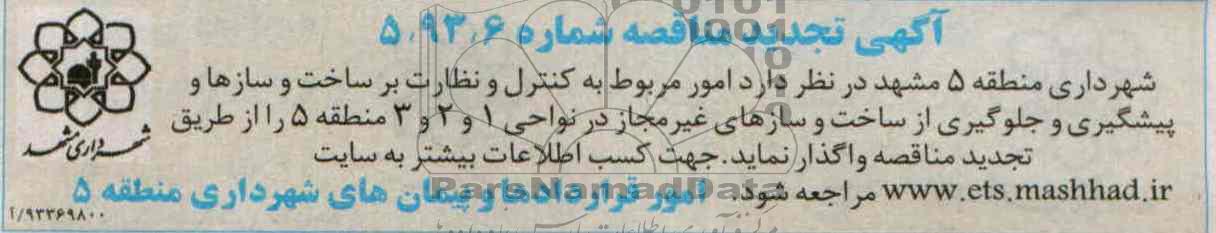 آگهی تجدید مناقصه شماره ۵،۹۳،۶
شهرداری منطقه ۵ مشهد در نظر دارد امور مربوط به کنترل و نظارت بر ساخت و سازها و
پیشگیری و جلوگیری از ساخت و سازهای غیرمجاز در نواحی ۱ و ۲ و ۳ منطقه ۵ را از طریق
تجدید مناقصه واگذار نماید. جهت کسب اطلاعات بیشتر به سایت
www.ets.mashhad.ir مراجعه شود. امور قراردادها و پیمان های شهرداری منطقه ۵
شهرداری مشهد
۹۳۳۶۹۸۰۰/آ
ParsNamadData